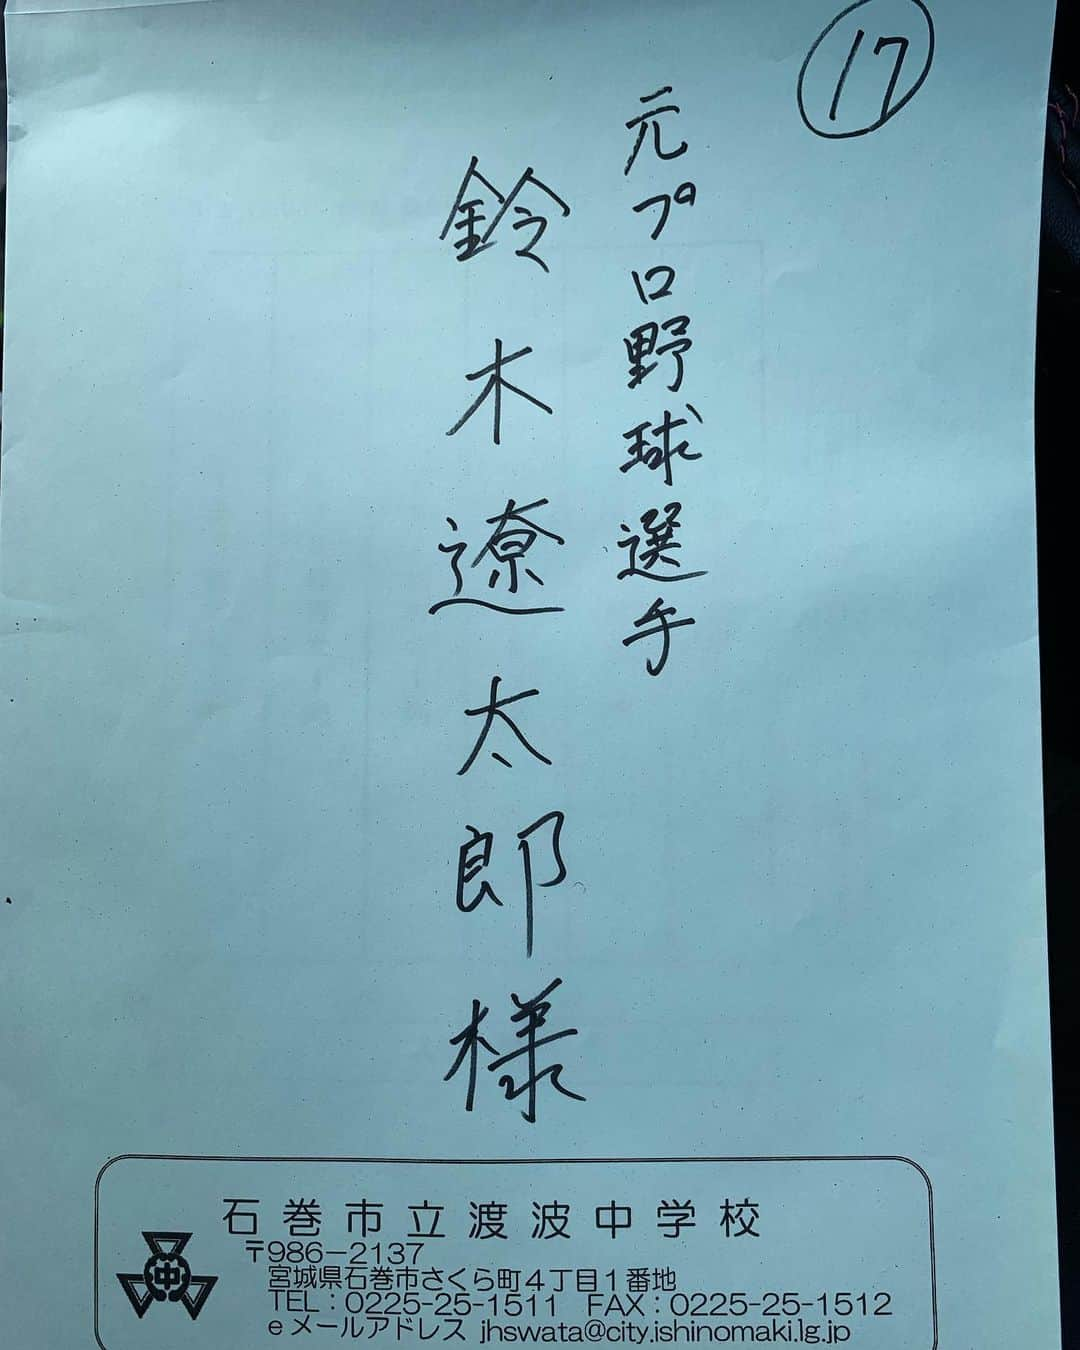 17
元プロ野球選手
鈴木遼太郎様
石巻市立渡波中学校
中
〒986-2137
宮城県石巻市さくら町4丁目1番地
TEL：0225-25-1511　FAX：0225-25-1512
eメールアドレス jhswata@city.ishinomaki.lg.jp